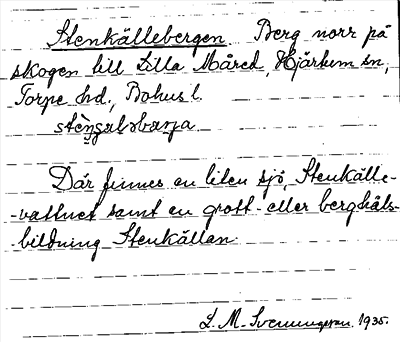 Stenkällebergen. Berg norr på
skogen till Lilla Måred, Hjärtum sn,
Torpe hd., Bohus l.
Där finnes en liten sjö, Stenkälle-
-vattnet samt en grott- eller berghåls-
-bildning Stenkällan.
L. M. Svenungsson 1935.